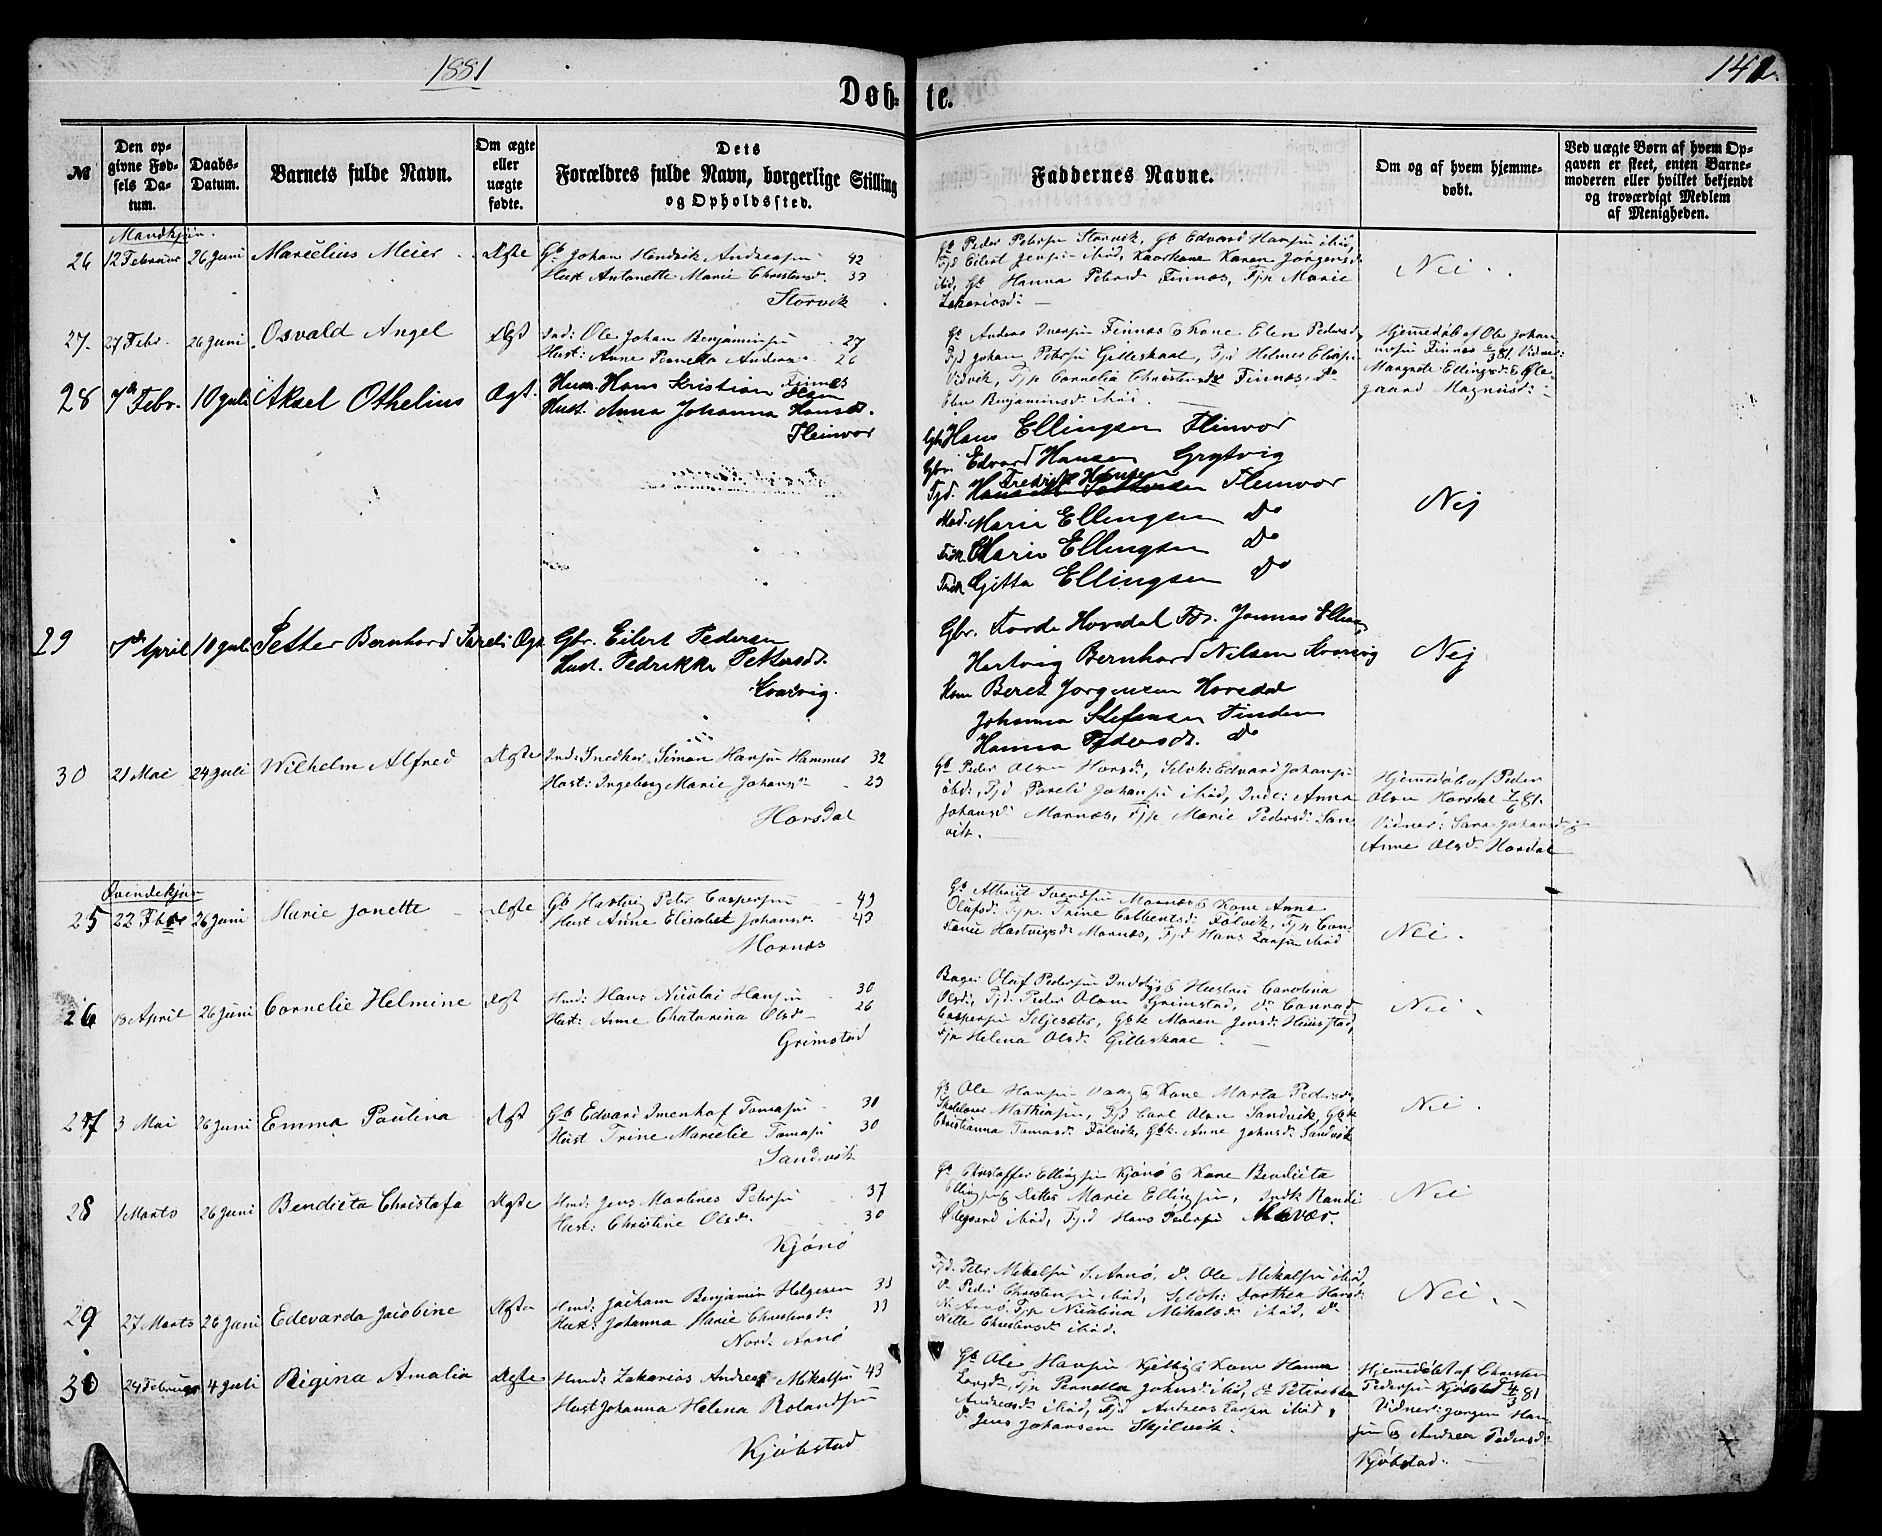 1881
141
Døb-
te.
№
Den op-
givne Fød-
sels Da-
tum.
Daabs-
Datum.
Barnets fulde Navn.
Om ægte
eller
uægte
fødte.
Dets
Forældres fulde Navn, borgerlige Stilling
og Opholdssted.
Faddernes Navne.
Om og af hvem hjemme-
døbt.
Ved uægte Børn af hvem Op-
gaven er skeet, enten Barne-
moderen eller hvilket bekjendt
og troværdigt Medlem
af Menigheden.
Mandkjøn.
26 12 Februar 26 Juni Marcelius Meier Ægte Gb Johan Hendrik Andreasen 42
Hust Antonette Marie Christensd. 33
Storvik
Gb Peder Petersen Storvik, Gb Edvard Hansen ibid,
Tjd Eilert Jensen ibid, Kaarkone Karen Jørgensd.
ibid, Gb Hanna Petersd. Finnæs, Tjp Marie
Zakariasd.
Nei
27. 27 Febr. 26 Juni Osvald Angel Ægt Ind: Ole Johan Benjaminsen 27
Hust: Anne Pernella Andersd. 26
Finnæs
Gb Anders Iversen Finnæs & Kone Elen Pedersd.
Tjd Johan Petersen Gilleskaal, Tjd Helmer
Vidvik, Tjp Cornelia Christensd. Finnæs, Do
Elen Benjaminsd. ibid.
Hjemmedøbt af Ole Johan
Finnæs 81. Vidner:
Margrete Ellingsd. & Ole-
gaard Magnusd.
28 7de Febr. 10 Juli Aksel Othelius Ægt. Husm. Hans Kristian Olsen
Hust. Anna Johanna Hansd.
Fleinvær
Gbr. Hans Ellingsen Fleinvær
Gbr. Edvard Hansen Grytvig
Fredrik Hansen
Tjd. Fleinvær
Mad. Marie Ellingsen Do
Marie Ellingsen Do
Gjetta Ellingsen Do
Nej
29 7de April 10 Juli Petter Bernhard Pareli Ægt Gbr. Eilert Pedersen
Hust. Pedrikke Pettersd.
Kvarvig.
Gbr. Torde Horsdal Jonnas
Hertvig Bernhard Nilsen Kvarvig
Kone Beret Jørgensen Horsdal
Johanna Stefansen Finden
Hanna Pedersd. Do
Nej
30 21 Mai 24 Juli Wilhelm Alfred Ægte Ind: Snedker Simon Hansen Hammer 32
Hust: Ingeborg Marie Johansd. 29
Horsdal
Gb Peder Olsen Horsd., Selvk: Edvard Johansen
ibid, Tjd Pareli Johansen ibid, Inde: Anna
Johansd. Mornæs, Tjp Marie Pedersd. San-
vik.
Hjemmedøbt af Peder
Olsen Horsdal 7/6 81.
Vidner: Sara Johansd. &
Anne Olsd. Horsdal
Qvindekjøn
25 22 Febr 26 Juni Marie Jonette Ægte Gb Hartvig Peter Caspersen 49
Hust Anne Elisabet Johansd. 43
Mornæs
Gb Albrigt Svendsen Mornæs & Kone Anne
Olufsd. Tjp. Trine Følvik, Tjp
Hartvigsd. Mornæs, Tjd Hans Larsen ibid
Nei.
26 13 April 26 Juni Cornelie Helmine Ægt Hmd: Hans Nicolai Hansen 30
Hust: Anne Chatarina Olsd. 26
Grimstad
Bager Oluf Pedersen Indby & Hustru Carolina
Olsd., Tjd: Peder Olsen Grimstad, Do Conrad
Caspersen Seljesæter, Gbk Maren Jensd.
Tjp Helena Olsd. Gilleskaal.
Nei.
27 3 Mai 26 Juni Emma Paulina Ægt Gb Edvard Imenhof Tomasen 30
Hust Trine Marcelie Tomasd. 30
Sandvik
Gb Ole Hansen Vaag & Kone Marta Pedersd.
Skolelærer Mathiasen, Tjd Carl Olsen Sandvik, Gbk
Christianna Tomasd. Følvik, Gbk. Anne Johnsd. Sandvik
Nei.
28 1 Marts 26 Juni Bendicta Christofa Ægte Hmd: Jens Martines Petersen 37
Hust: Christine Olsd. 30
Kjønø
Gb Christoffer Ellingsen Kjønø & Kone Bendicta
Ellingsen & Marie Ellingsen, Indk Randi
Olegaard ibid, Tjd Hans Pedersen
Nei
29 27 Marts 26 Juni Edevarda Jacobine Ægte Hmd: Joakam Benjamin Helgesen 33
Hust: Johanna Marie Christensd. 33
Nord. Arnø
Tjd. Peter Mikalsen S. Arnø, Do Ole Mikalsen ibid,
Do Peder Christensen ibid, Selvk: Dorthea Hansd.
N. Arnø, Tjp Nicolina Mikalsd. ibid, Do
Nette Christensd. ibid.
Nei.
30 24 Februar 4 Juli Regina Amalia Ægte Hmd: Zakarias Andreas Mikalsen 43
Hust Johanna Helena Rolandsen
Kjøbstad
Gb Ole Hansen & Kone Hanna
Larsd., Tjp Pernella Johnsd. ibid, Do Petrikka
Andreasd. ibid, Tjd Andreas Larsen ibid,
Do Jens Johansen Skjelvik.
Hjemmedøbt af Christen
Pedersen Kjøbstad 4/3 81
Vidner: Jørgen Han-
sen & Andrea Pedersd.
Kjøbstad.